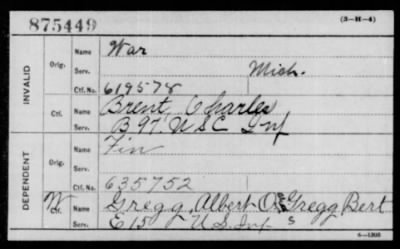 875449
(3-H-4)
INVALID
Orig.
Name War
Serv. Mich.
Ctf. No. 619578
Ctf.
Name Brent, Charles
Serv. B 97' U S C Inf
DEPENDENT
Orig.
Name Fin
Serv.
Ctf. No. 635752
W Ctf.
Name Gregg, Albert O. Gregg Bert
Serv. E 15 U. S. Inf.
6-1303